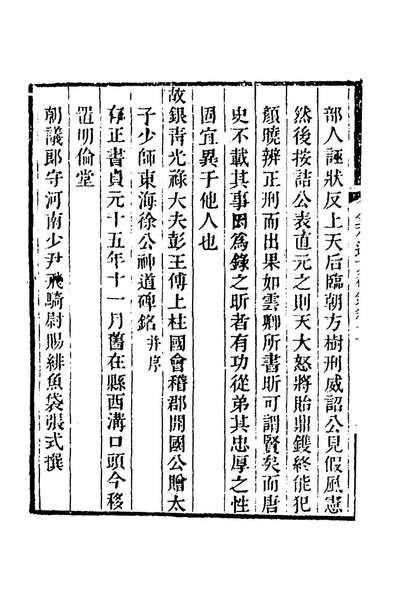 部人誣狀反上天后臨朝方樹刑威詔公見假風憲
然後按詰公表直元之則天大怒將貽鼎鑊終能犯
顏曉辨正刑而出果如雲卿所書昕可謂賢矣而唐
史不載其事因爲錄之昕者有功從弟其忠厚之性
固宜異于他人也
故銀青光祿大夫彭王傅上柱國會稽郡開國公贈太
子少師東海徐公神道碑銘并序
存正書貞元十五年十一月舊在縣西溝口頭今移
置明倫堂
朝議郎守河南少尹飛騎尉賜緋魚袋張式撰